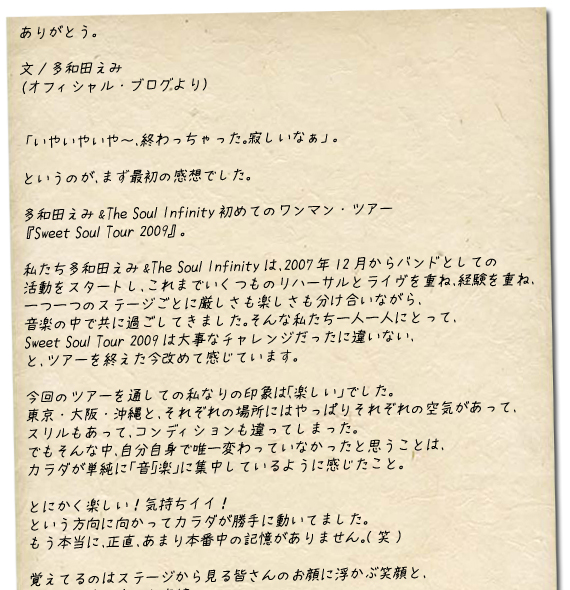 ありがとう。
文 / 多和田えみ
(オフィシャル・ブログより)
「いやいやいや〜、終わっちゃった。寂しいなぁ」。
というのが、まず最初の感想でした。
多和田えみ &The Soul Infinity 初めてのワンマン・ツアー
『Sweet Soul Tour 2009』。
私たち多和田えみ &The Soul Infinity は、2007 年 12 月からバンドとしての
活動をスタートし、これまでいくつものリハーサルとライヴを重ね、経験を重ね、
一つ一つのステージごとに厳しさも楽しさも分け合いながら、
音楽の中で共に過ごしてきました。そんな私たち一人一人にとって、
Sweet Soul Tour 2009 は大事なチャレンジだったに違いない、
と、ツアーを終えた今改めて感じています。
今回のツアーを通しての私なりの印象は「楽しい」でした。
東京・大阪・沖縄と、それぞれの場所にはやっぱりそれぞれの空気があって、
スリルもあって、コンディションも違ってしまった。
でもそんな中、自分自身で唯一変わっていなかったと思うことは、
カラダが単純に「音」「楽」に集中しているように感じたこと。
とにかく楽しい！気持ちイイ！
という方向に向かってカラダが勝手に動いてました。
もう本当に、正直、あまり本番中の記憶がありません。( 笑 )
覚えてるのはステージから見る皆さんのお顔に浮かぶ笑顔と、